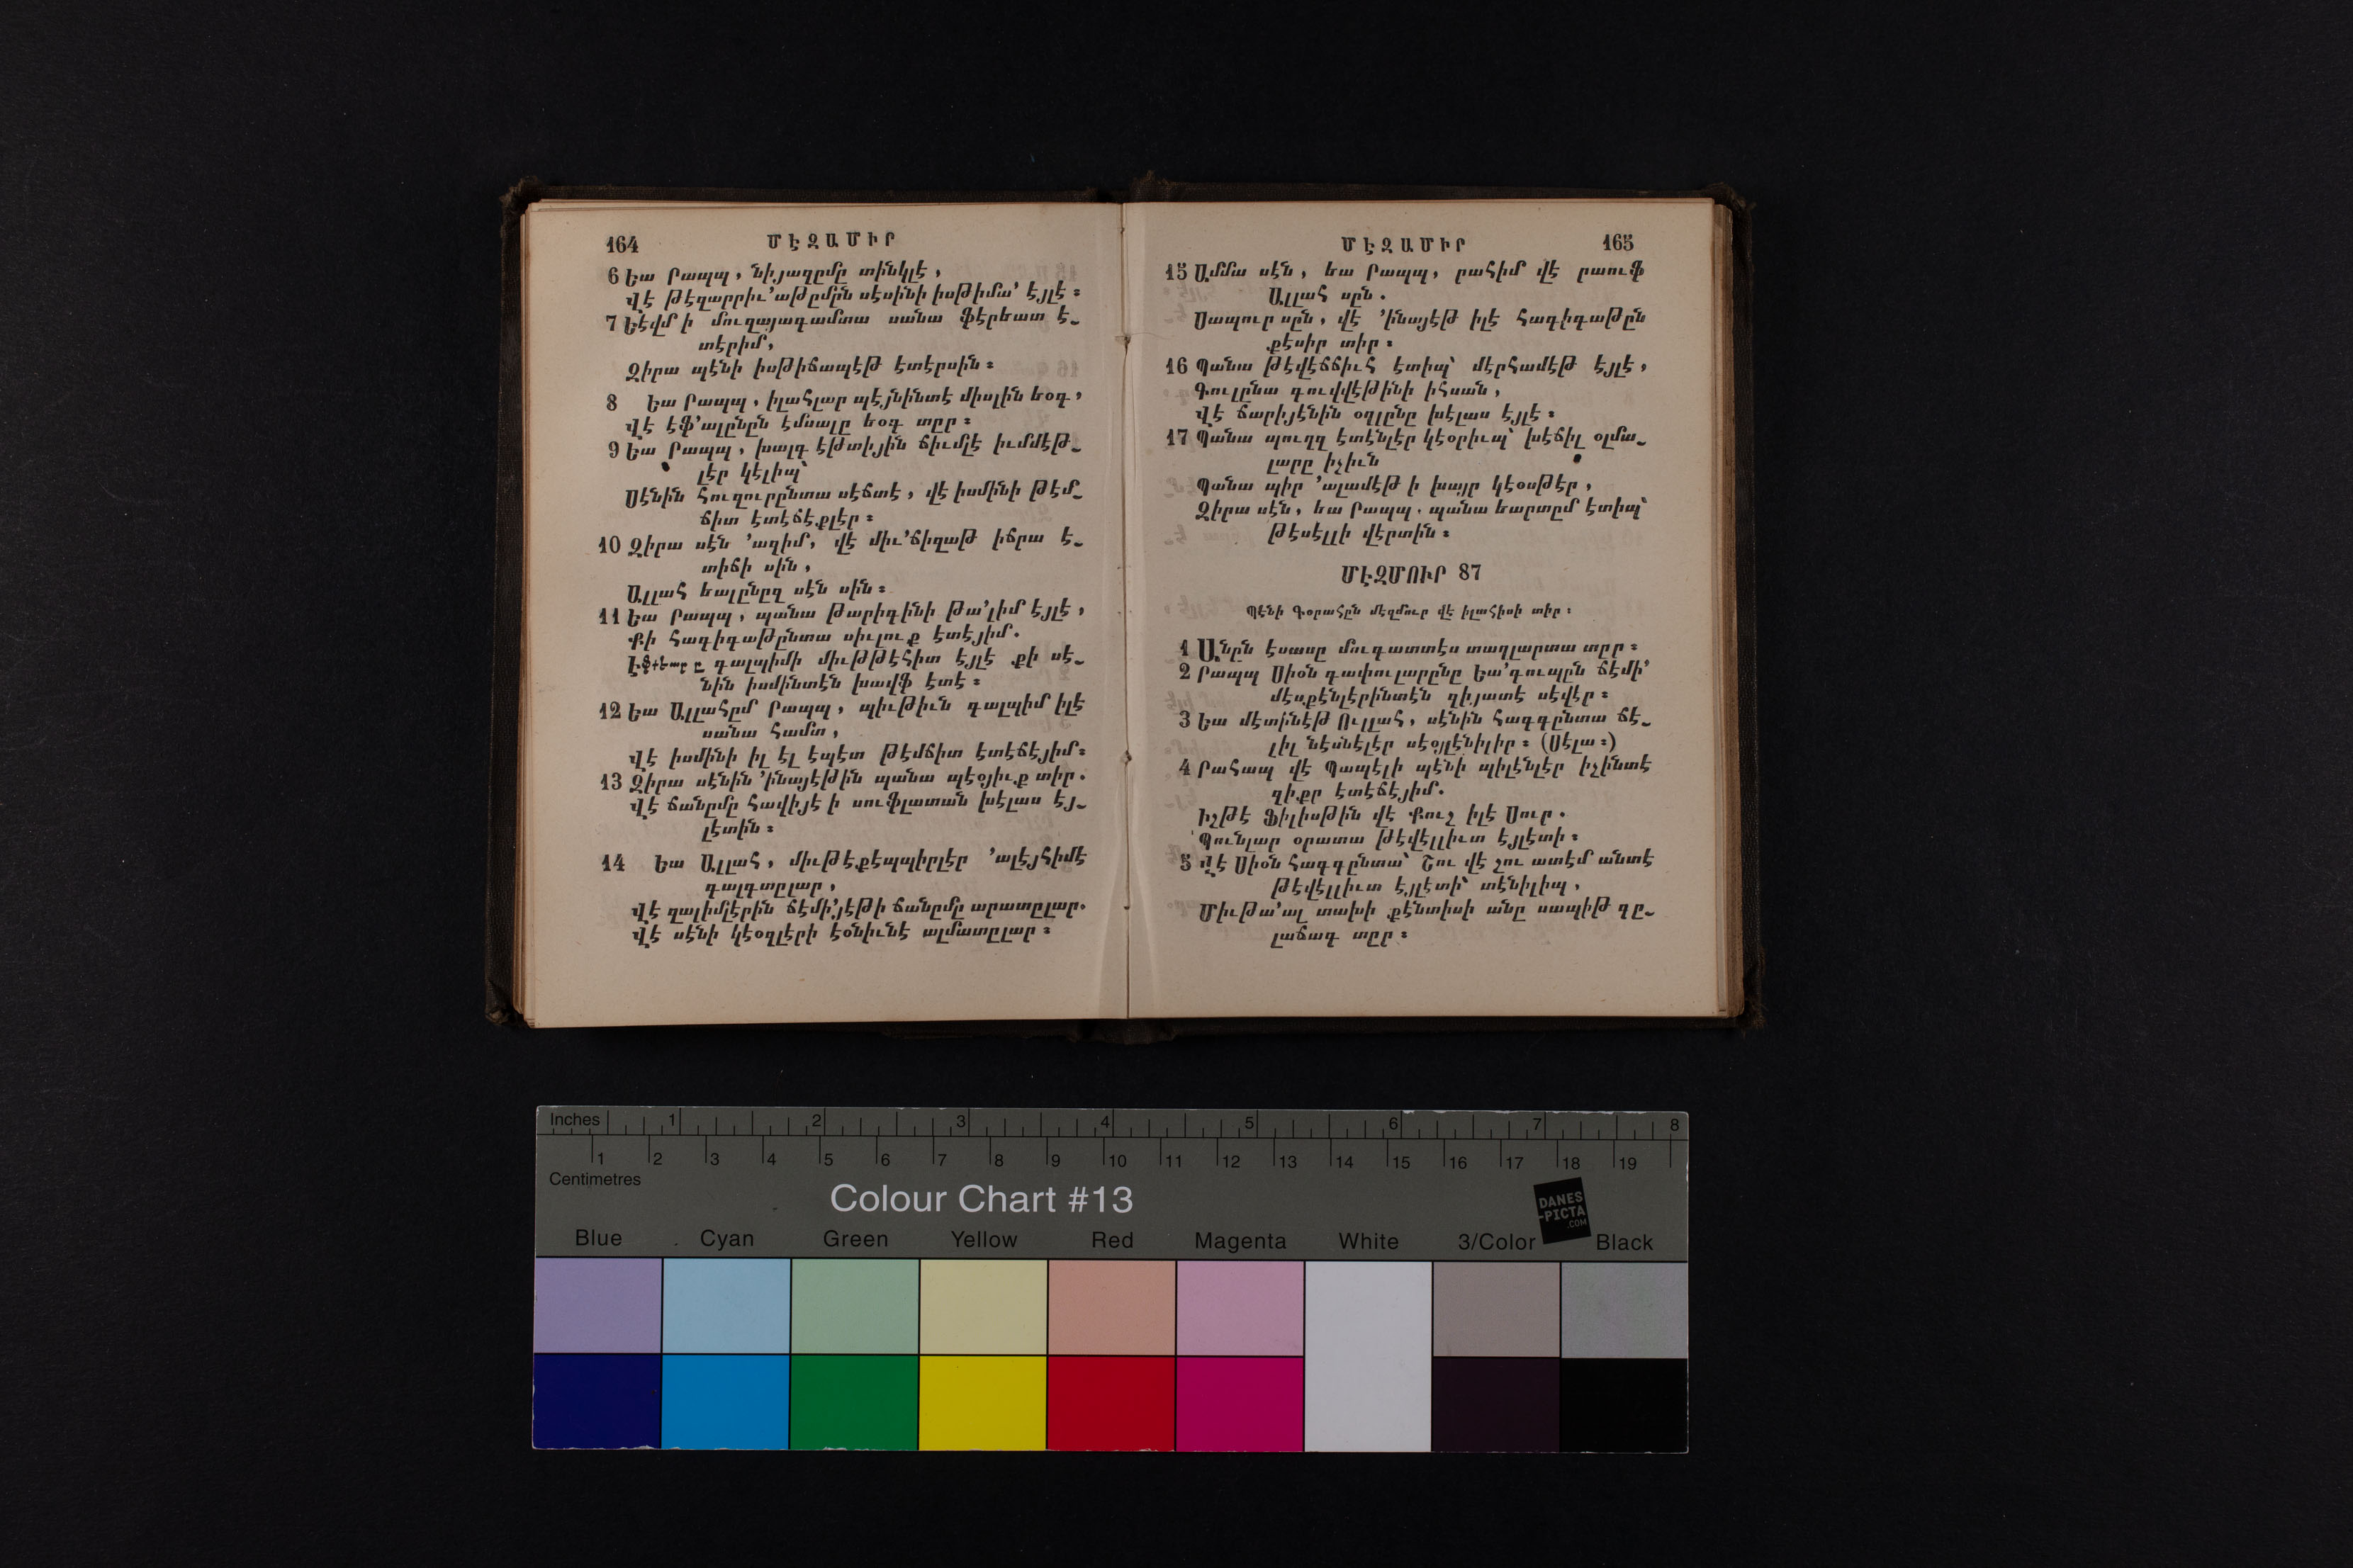 164 ՄԷԶԱՄԻՐ
6 Եա Րապպ, նիյազըմը տինկլէ,
Վէ թէզարրիւ՚աթըմըն սէսինի իսթիմա՚ էյլէ։
7 Եէվմ ի մուզայագամտա սանա ֆէրեատ է֊
տէրիմ,
Զիրա պէնի իսթիճապէթ էտէրսին։
8 Եա Րապպ, իլահլար պէյնինտէ միսլին եօգ,
Վէ էֆ՚ալընըն էմսալը եօգ տըր։
9 Եա Րապպ, խալգ էթտիյին ճիւմլէ իւմմէթ֊
լէր կէլիպ՝
Սէնին հուզուրընտա սէճտէ, վէ իսմինի թէմ֊
ճիտ էտէճէքլէր։
10 Զիրա սէն ՚ազիմ, վէ միւ՚ճիզաթ իճրա է֊
տիճի սին,
Ալլահ եալընըզ սէն սին։
11 Եա Րապպ, պանա թարիգինի թա՚լիմ էյլէ,
Քի հագիգաթընտա սիւլուք էտէյիմ.
գալպիմի միւթթէհիտ էյլէ քի սէ֊
նին իսմինտէն խավֆ էտէ։
12 Եա Ալլահըմ Րապպ, պիւթիւն գալպիմ իլէ
սանա համտ,
Վէ իսմինի իլ էլ էպէտ թէմճիտ էտէճէյիմ։
13 Զիրա սէնին ՚ինայէթին պանա պէօյիւք տիր.
Վէ ճանըմը հավիյէ ի սուֆլատան խէլաս էյ֊
լէտին։
14 Եա Ալլահ, միւթէքէպպիրլէր ՚ալէյհիմէ
գալգտըլար,
Վէ զալիմլէրին ճէմի՚յէթի ճանըմը արատըլար.
Վէ սէնի կէօզլէրի էօնիւնէ ալմատըլար։
ՄԷԶԱՄԻՐ 165
15 Ամմա սէն, եա Րապպ, րահիմ վէ րաուֆ
Ալլահ սըն.
Սապուր սըն, վէ ՚ինայէթ իլէ հագիգաթըն
քէսիր տիր։
16 Պանա թէվէճճիւհ էտիպ՝ մէրհամէթ էյլէ,
Գուլընա գուվվէթինի իհսան,
Վէ ճարիյէնին օղլընը խէլաս էյլէ։
17 Պանա պուղզ էտէնլէր կէօրիւպ՝ խէճիլ օլմա֊
լարը իչիւն
Պանա պիր ՚ալամէթ ի խայր կէօսթէր,
Զիրա սէն, եա Րապպ. պանա եարտըմ էտիպ՝
թէսէլլի վէրտին։
ՄԷԶՄՈՒՐ 87
Պէնի Գօրահըն մէզմուր վէ իլահիսի տիր։
1 Անըն էսասը մուգատտէս տաղլարտա տըր։
2 Րապպ Սիօն գափուլարընը Եա՚գուպըն ճէմի՚
մէսքէնլէրինտէն զիյատէ սէվէր։
3 Եա մէտինէթ Ուլլահ, սէնին հագգընտա ճէ֊
լիլ նէսնէլէր սէօյլէնիլիր։ (Սէլա։)
4 Րահապ վէ Պապէլի պէնի պիլէնլէր իչինտէ
զիքր էտէճէյիմ.
Իշթէ Ֆիլիսթին վէ Քուշ իլէ Սուր.
Պունլար օրատա թէվէլլիւտ էյլէտի։
5 Վէ Սիօն հագգընտա՝ Շու վէ շու ատէմ անտէ
թէվէլլիւտ էյլէտի՝ տէնիլիպ,
Միւթա՚ալ տախի քէնտիսի անը սապիթ գը֊
լաճագ տըր։
Inches 1 2 3 4 5 6 7 8
1 2 3 4 5 6 7 8 9 10 11 12 13 14 15 16 17 18 19
Centimetres
Colour Chart #13
DANES
-PICTA
.COM
Blue Cyan Green Yellow Red Magenta White 3/Color Black